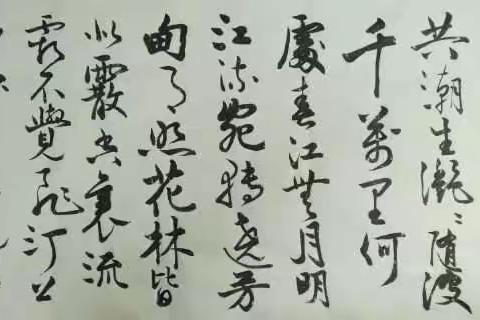 共潮生灧〻随波
千萬里何
處春江無月明
江流宛轉遶芳
甸月照花林皆
似霰空裏流
霜不覺飛汀上